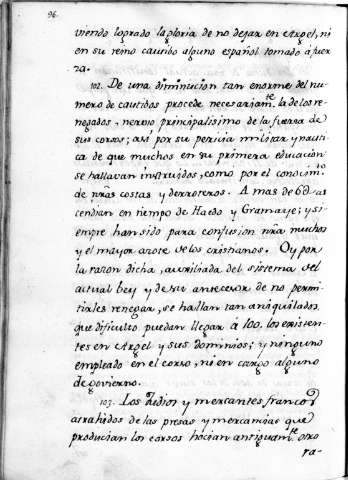 96.
viendo logrado la gloria de no dejar en Argel, ni
en su reino cautibo alguno español tomado á fuer
za.
102. De una diminucion tan enorme del nu
mero de cautibos procede necesariamte. la de los re
negados, nervio principalisimo de la fuerza de
sus corsos; asi por su pericia militar y nauti
ca de que muchos en su primera educacion
se hallavan instruidos, como por el conocimto.
de nras costas y derroteros. A mas de 6@ as
cendian en tiempo de Haedo y Gramaye; y si
empre han sido para confusion nra muchos
y el mayor azote de los cristianos. Oy por
la razon dicha, auxiliada del sistema del
actual bey y de su antecesor de no permi
tirles renegar, se hallan tan aniquilados,
que dificulto puedan llegar á 100. los existen
tes en Argel y sus dominios; y ninguno
empleado en el corso, ni en cargo alguno
de govierno.
103. Los Judios y mercantes francos
atrahidos de las presas y mercancias que
producian los corsos hacian antiguamte. otro
ra-